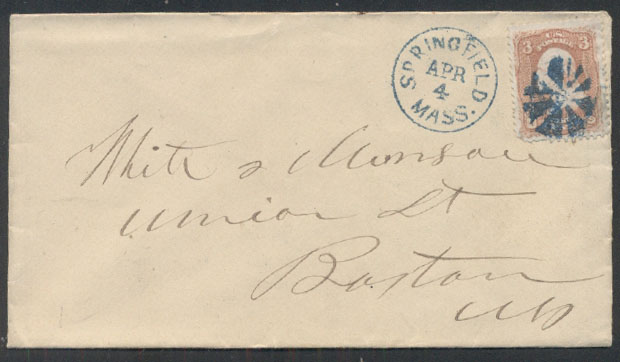 SPRINGFIELD
APR
4
MASS.
3 U.S. POSTAGE 3
White & Munson
Union St
Boston
Ms